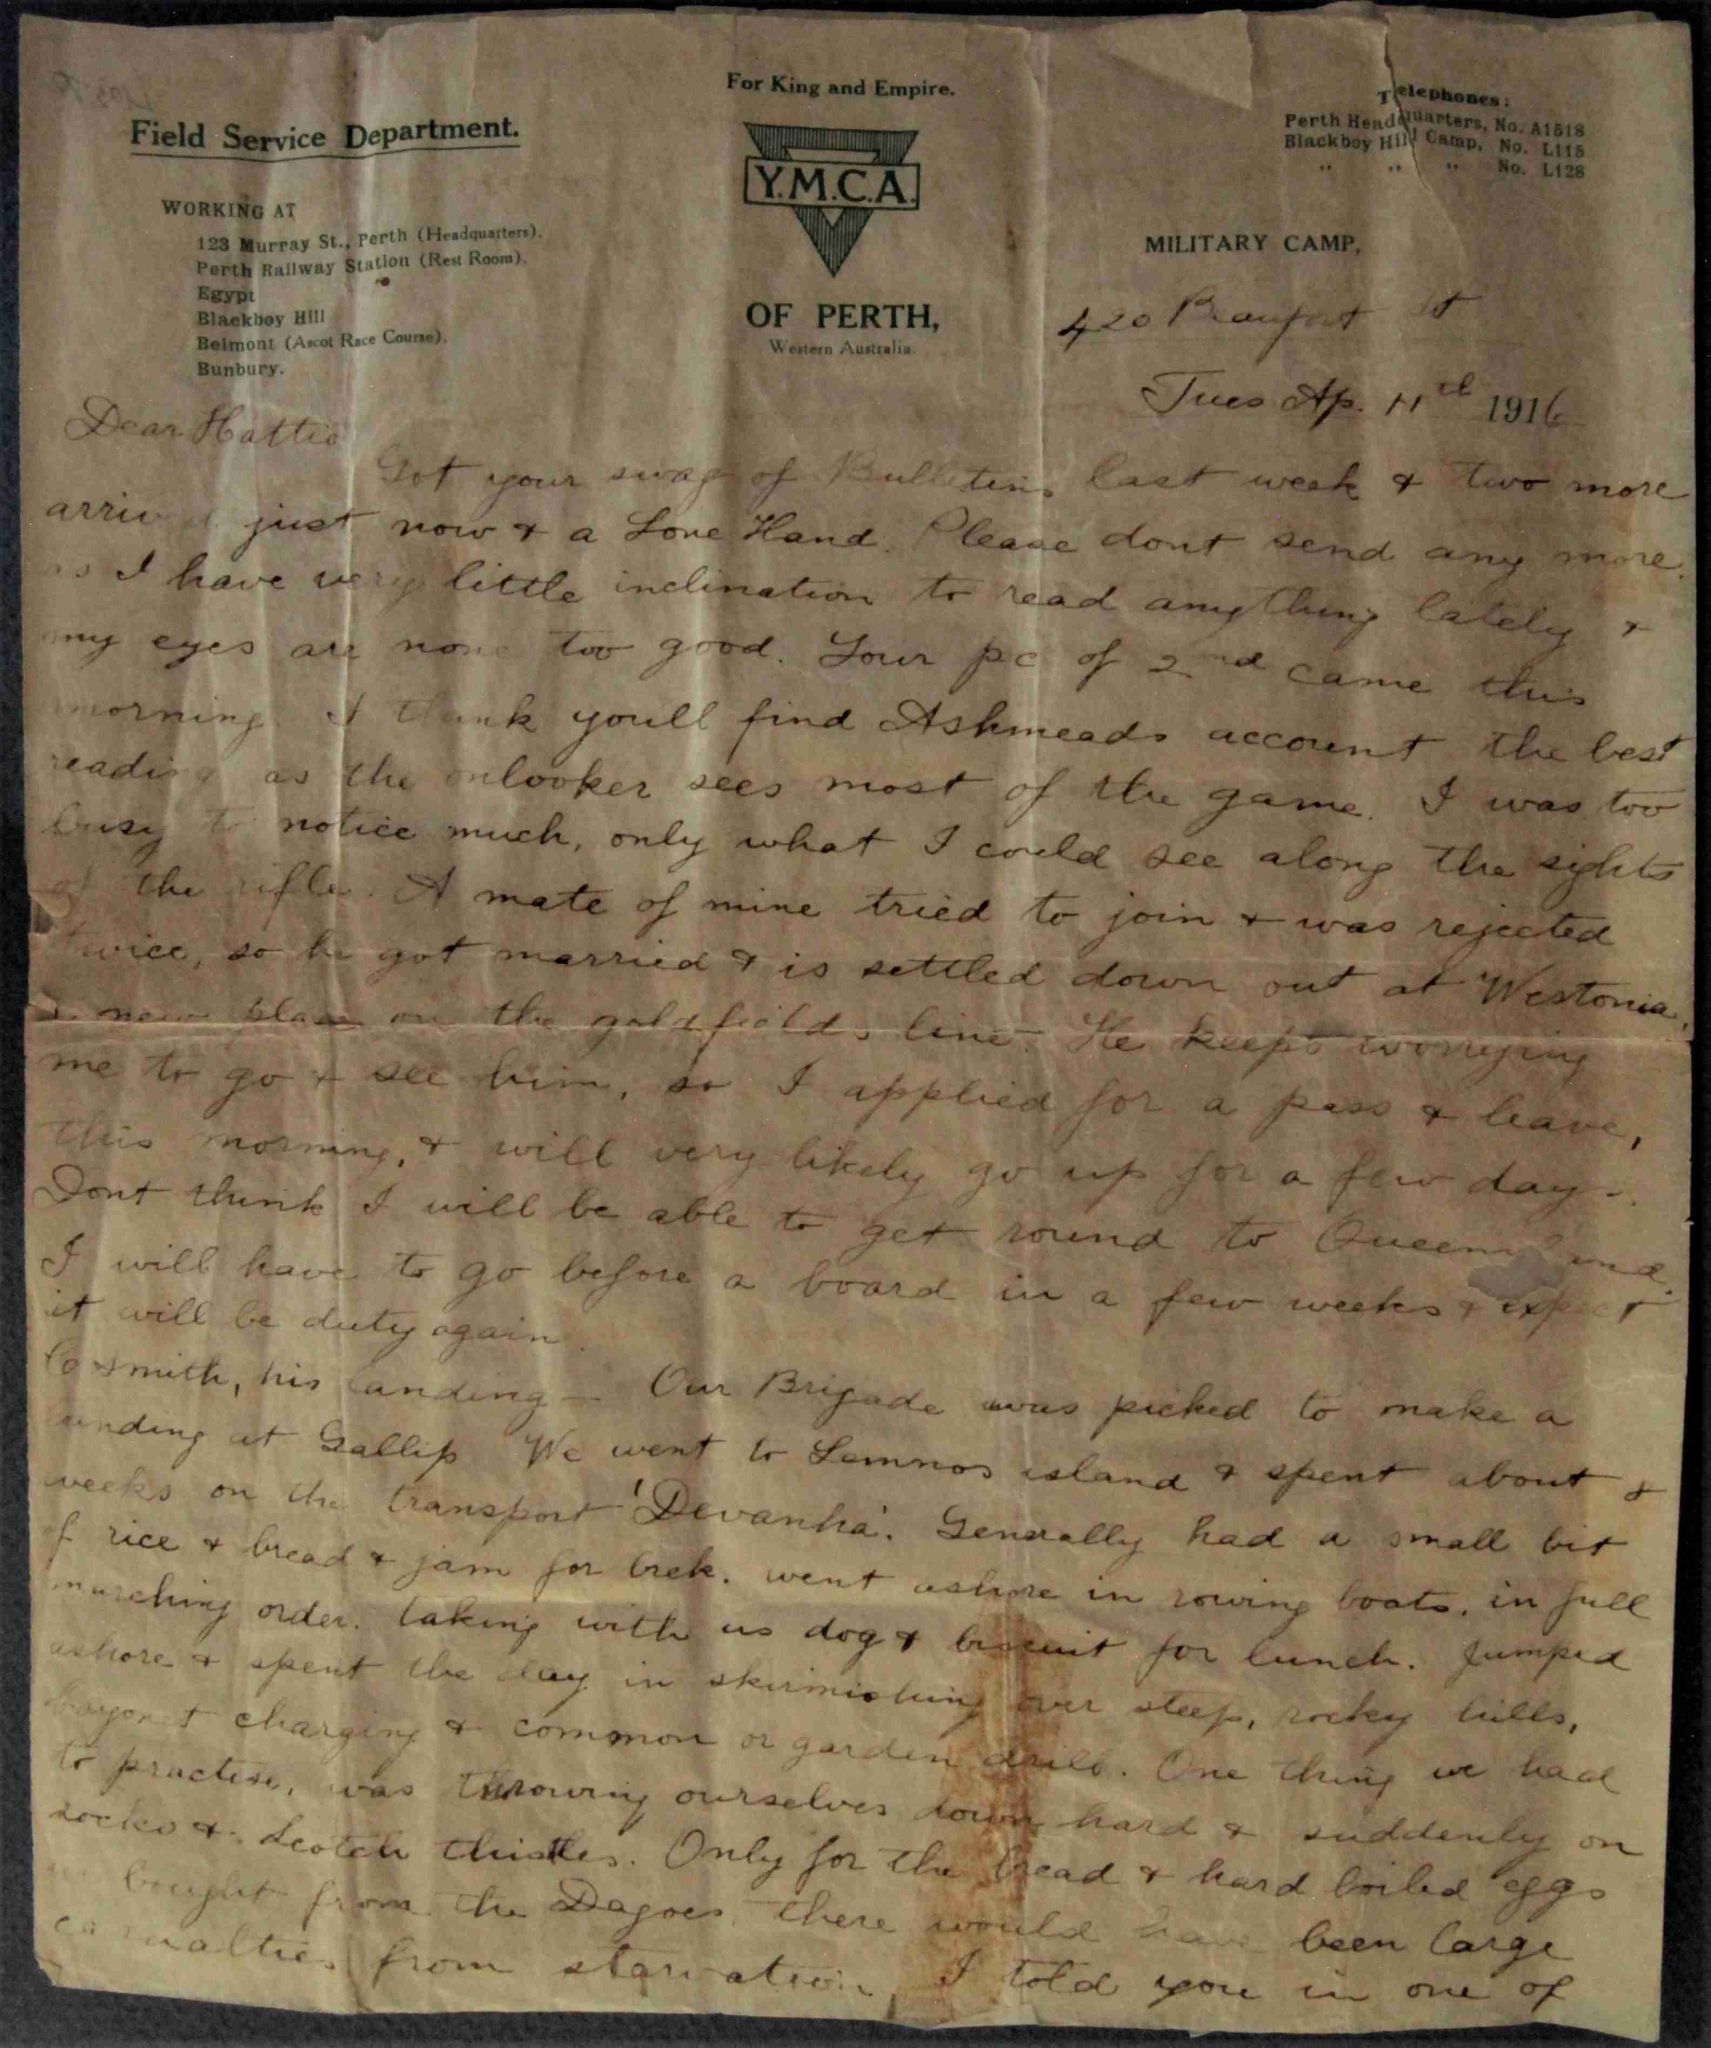 For King and Empire.
Field Service Department.
Telephones:
Perth Headquarters, No. A1518
Blackboy Hill Camp, No. L115
" " " No. L128
Y.M.C.A.
OF PERTH,
Western Australia.
WORKING AT
123 Murray St., Perth (Headquarters).
Perth Railway Station (Rest Room).
Egypt
Blackboy Hill
Belmont (Ascot Race Course).
Bunbury.
MILITARY CAMP,
420 Beaufort St
Tues Ap. 11th 1916
Dear Hattie
Got your swag of Bulletins last week & two more
arrived just now & a Lone Hand. Please dont send any more.
as I have very little inclination to read anything lately &
my eyes are none too good. Your pc of 2nd came this
morning. I think youll find Ashmeads account the best
reading as the onlooker sees most of the game. I was too
busy to notice much, only what I could see along the sights
of the rifle. A mate of mine tried to join & was rejected
twice, so he got married & is settled down out at Westonia,
a new place on the goldfields line. He keeps worrying
me to go & see him, so I applied for a pass & leave,
this morning, & will very likely go up for a few days.
Dont think I will be able to get round to Queensland.
I will have to go before a board in a few weeks & expect
it will be duty again.
Cosmith, his landing — Our Brigade was picked to make a
landing at Gallip We went to Lemnos island & spent about
weeks on the transport 'Devanha'. Generally had a small bit
of rice & bread & jam for brek. went ashore in rowing boats, in full
marching order. taking with us dog & biscuit for lunch. Jumped
ashore & spent the day in skirmishing over steep, rocky hills,
bayonet charging & common or garden drill. One thing we had
to practise, was throwing ourselves down hard & suddenly on
rocks & Scotch thistles. Only for the bread & hard boiled eggs
we bought from the Dagoes there would have been large
casualties from starvation. I told you in one of